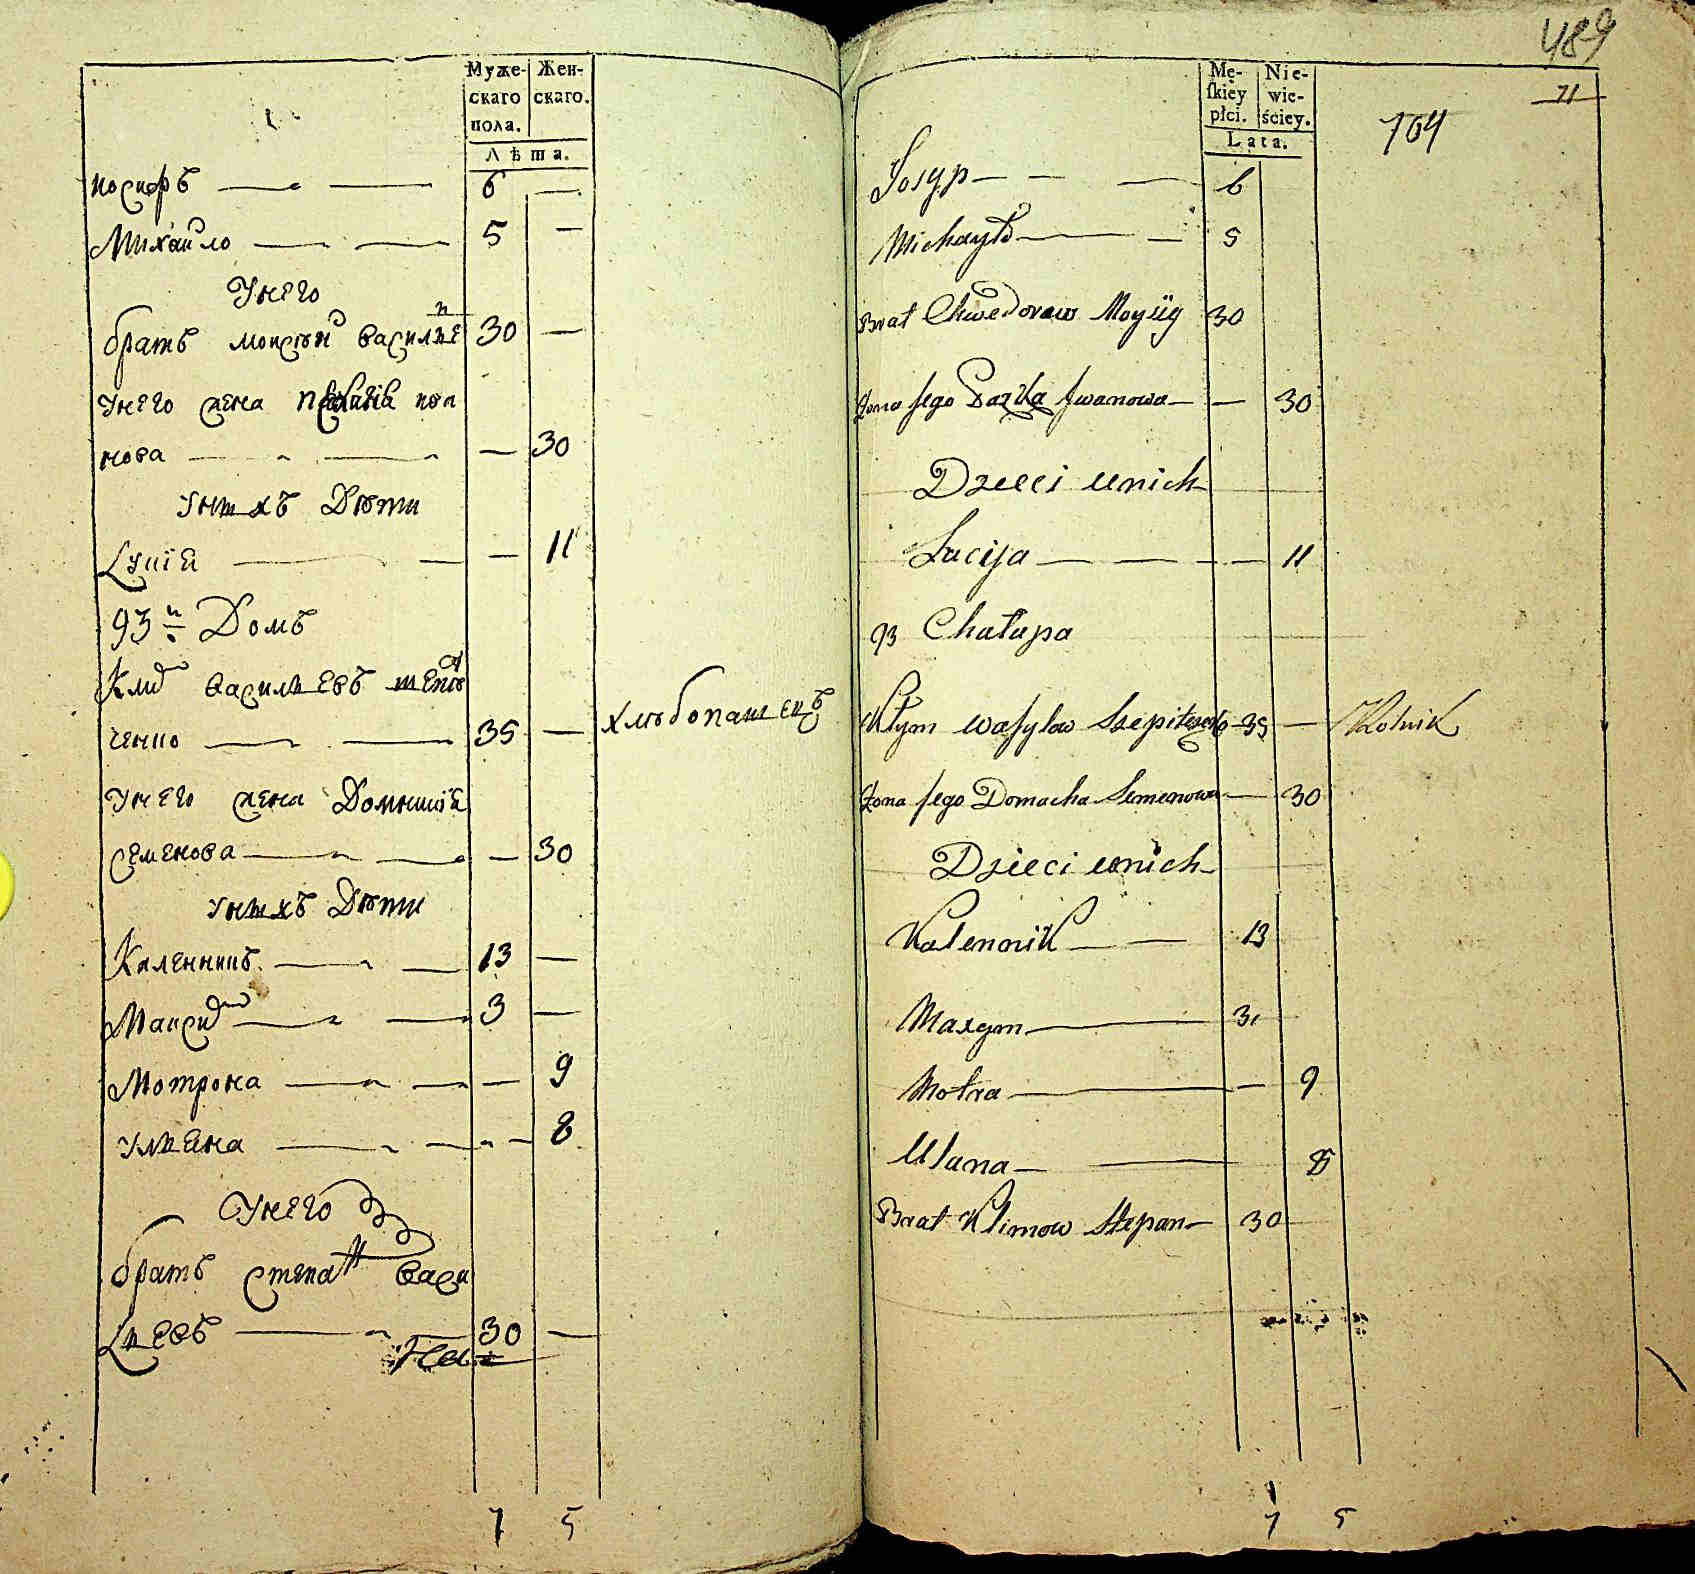 Муже- Жен-
скаго скаго.
пола.
Лѣта.
иосифъ 6 —
Михайло 5 —
Унего
братъ моисѣй василье 30 —
Унего жена Пелагія ива
нова — 30
Унихъ Дѣти
Луція — 11
93й Домъ
Клим васильевъ шепѣт
ченко 35 — хлѣбопашецъ
Унего жена Домникія
семенова — 30
Унихъ Дѣти
Каленникъ 13 —
Максим 3 —
Мотрона — 9
Ульяна — 8
Унего
братъ степан васи
льевъ 30 —
7 5
489
71
104
Mę- Nie-
skiey wie-
płci. ściey.
Lata.
Josyp 6
Michayło 5
Brat Chwedorow Moysiy 30
Żona jego Paraska Iwanowa — 30
Dzieci unich
Łucija — 11
93 Chałupa
Kłym Wasylow Szepitczenko 35 — Rolnik
Żona jego Domacha Semenowa — 30
Dzieci unich
Kalennik 13
Maxym 3
Motra — 9
Ulana 8
Brat Klimow Stepan 30
7 5